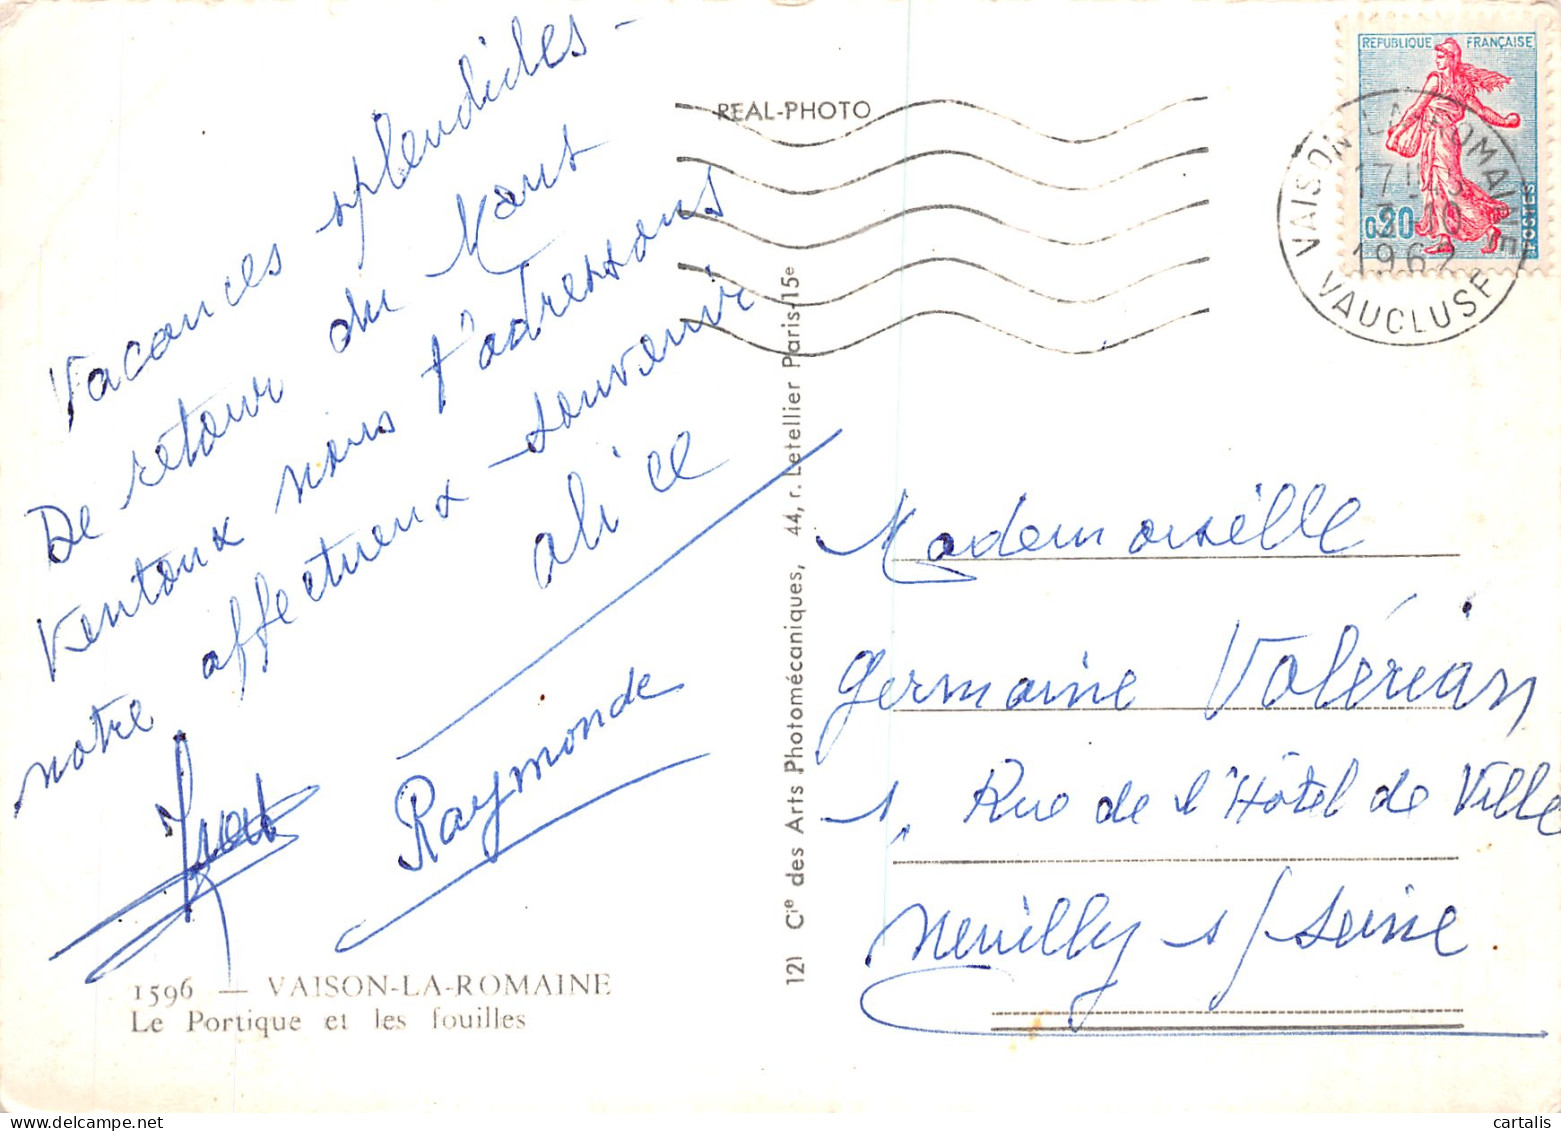 Vacances splendides -
De retour du Mont
Ventoux nous t'adressons
notre affectueux souvenir
alice
Raymonde
1596 — VAISON-LA-ROMAINE
Le Portique et les fouilles
REAL-PHOTO
121 Cie des Arts Photomécaniques, 44, r. Letellier Paris-15e
REPUBLIQUE FRANÇAISE
0,20
POSTES
VAISON-LA-ROMAINE
1962
VAUCLUSE
Mademoiselle
Germaine Valérian
1, Rue de l'Hôtel de Ville
Neuilly s/Seine
cartalis